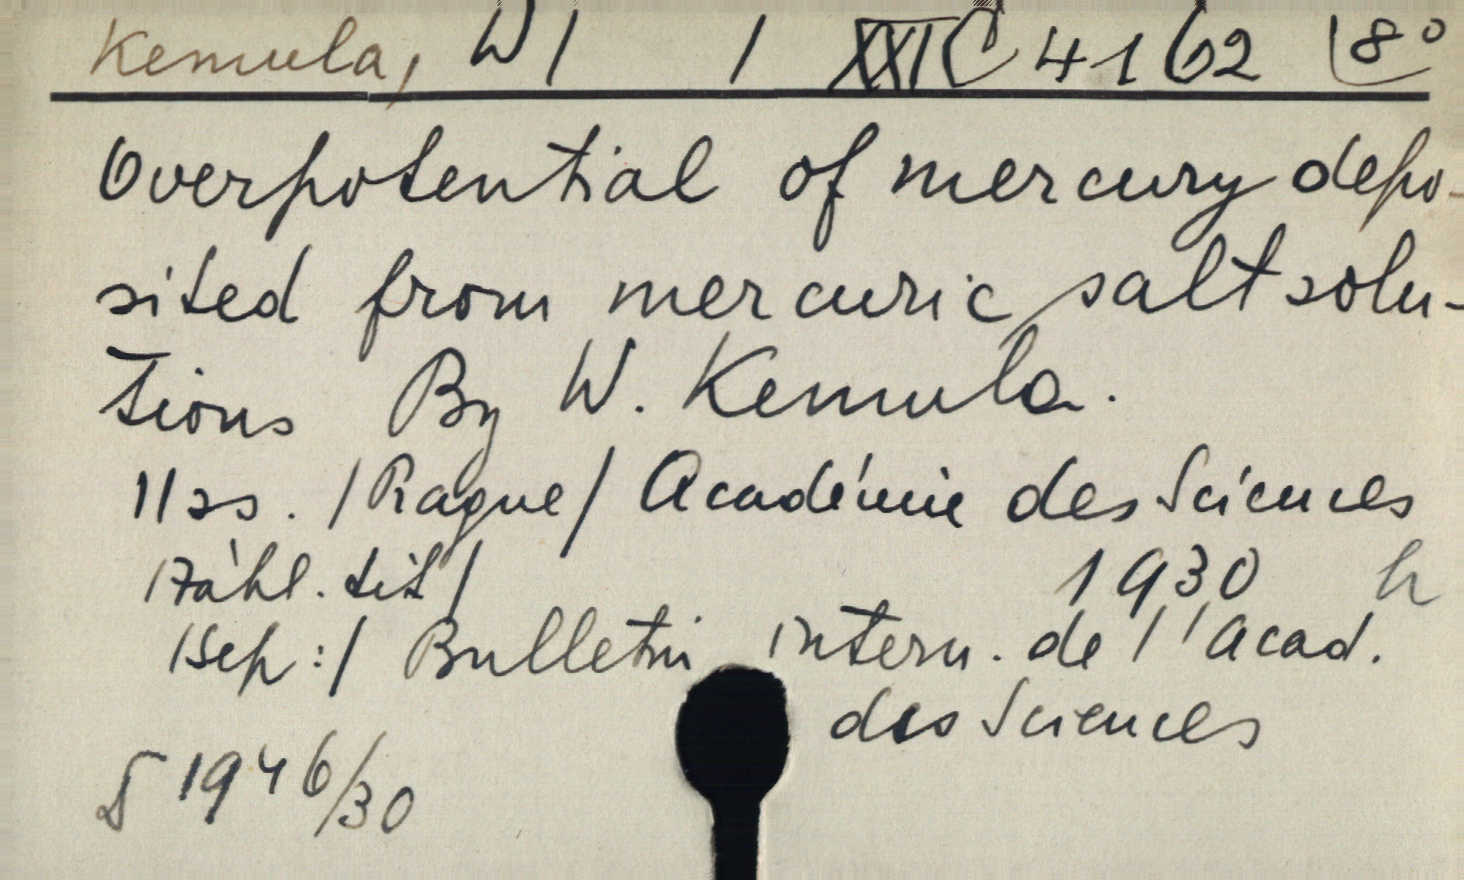 Kemula, W / / XXI C 4162 8°
Overpotential of mercury depo-
sited from mercuric salt solu-
tions By W. Kemula.
11 ss. /Rague/ Académie des Sciences
/záhl. tit/ 1930 h
/Sep:/ Bulletin intern. de l'Acad.
des Sciences
1946/30